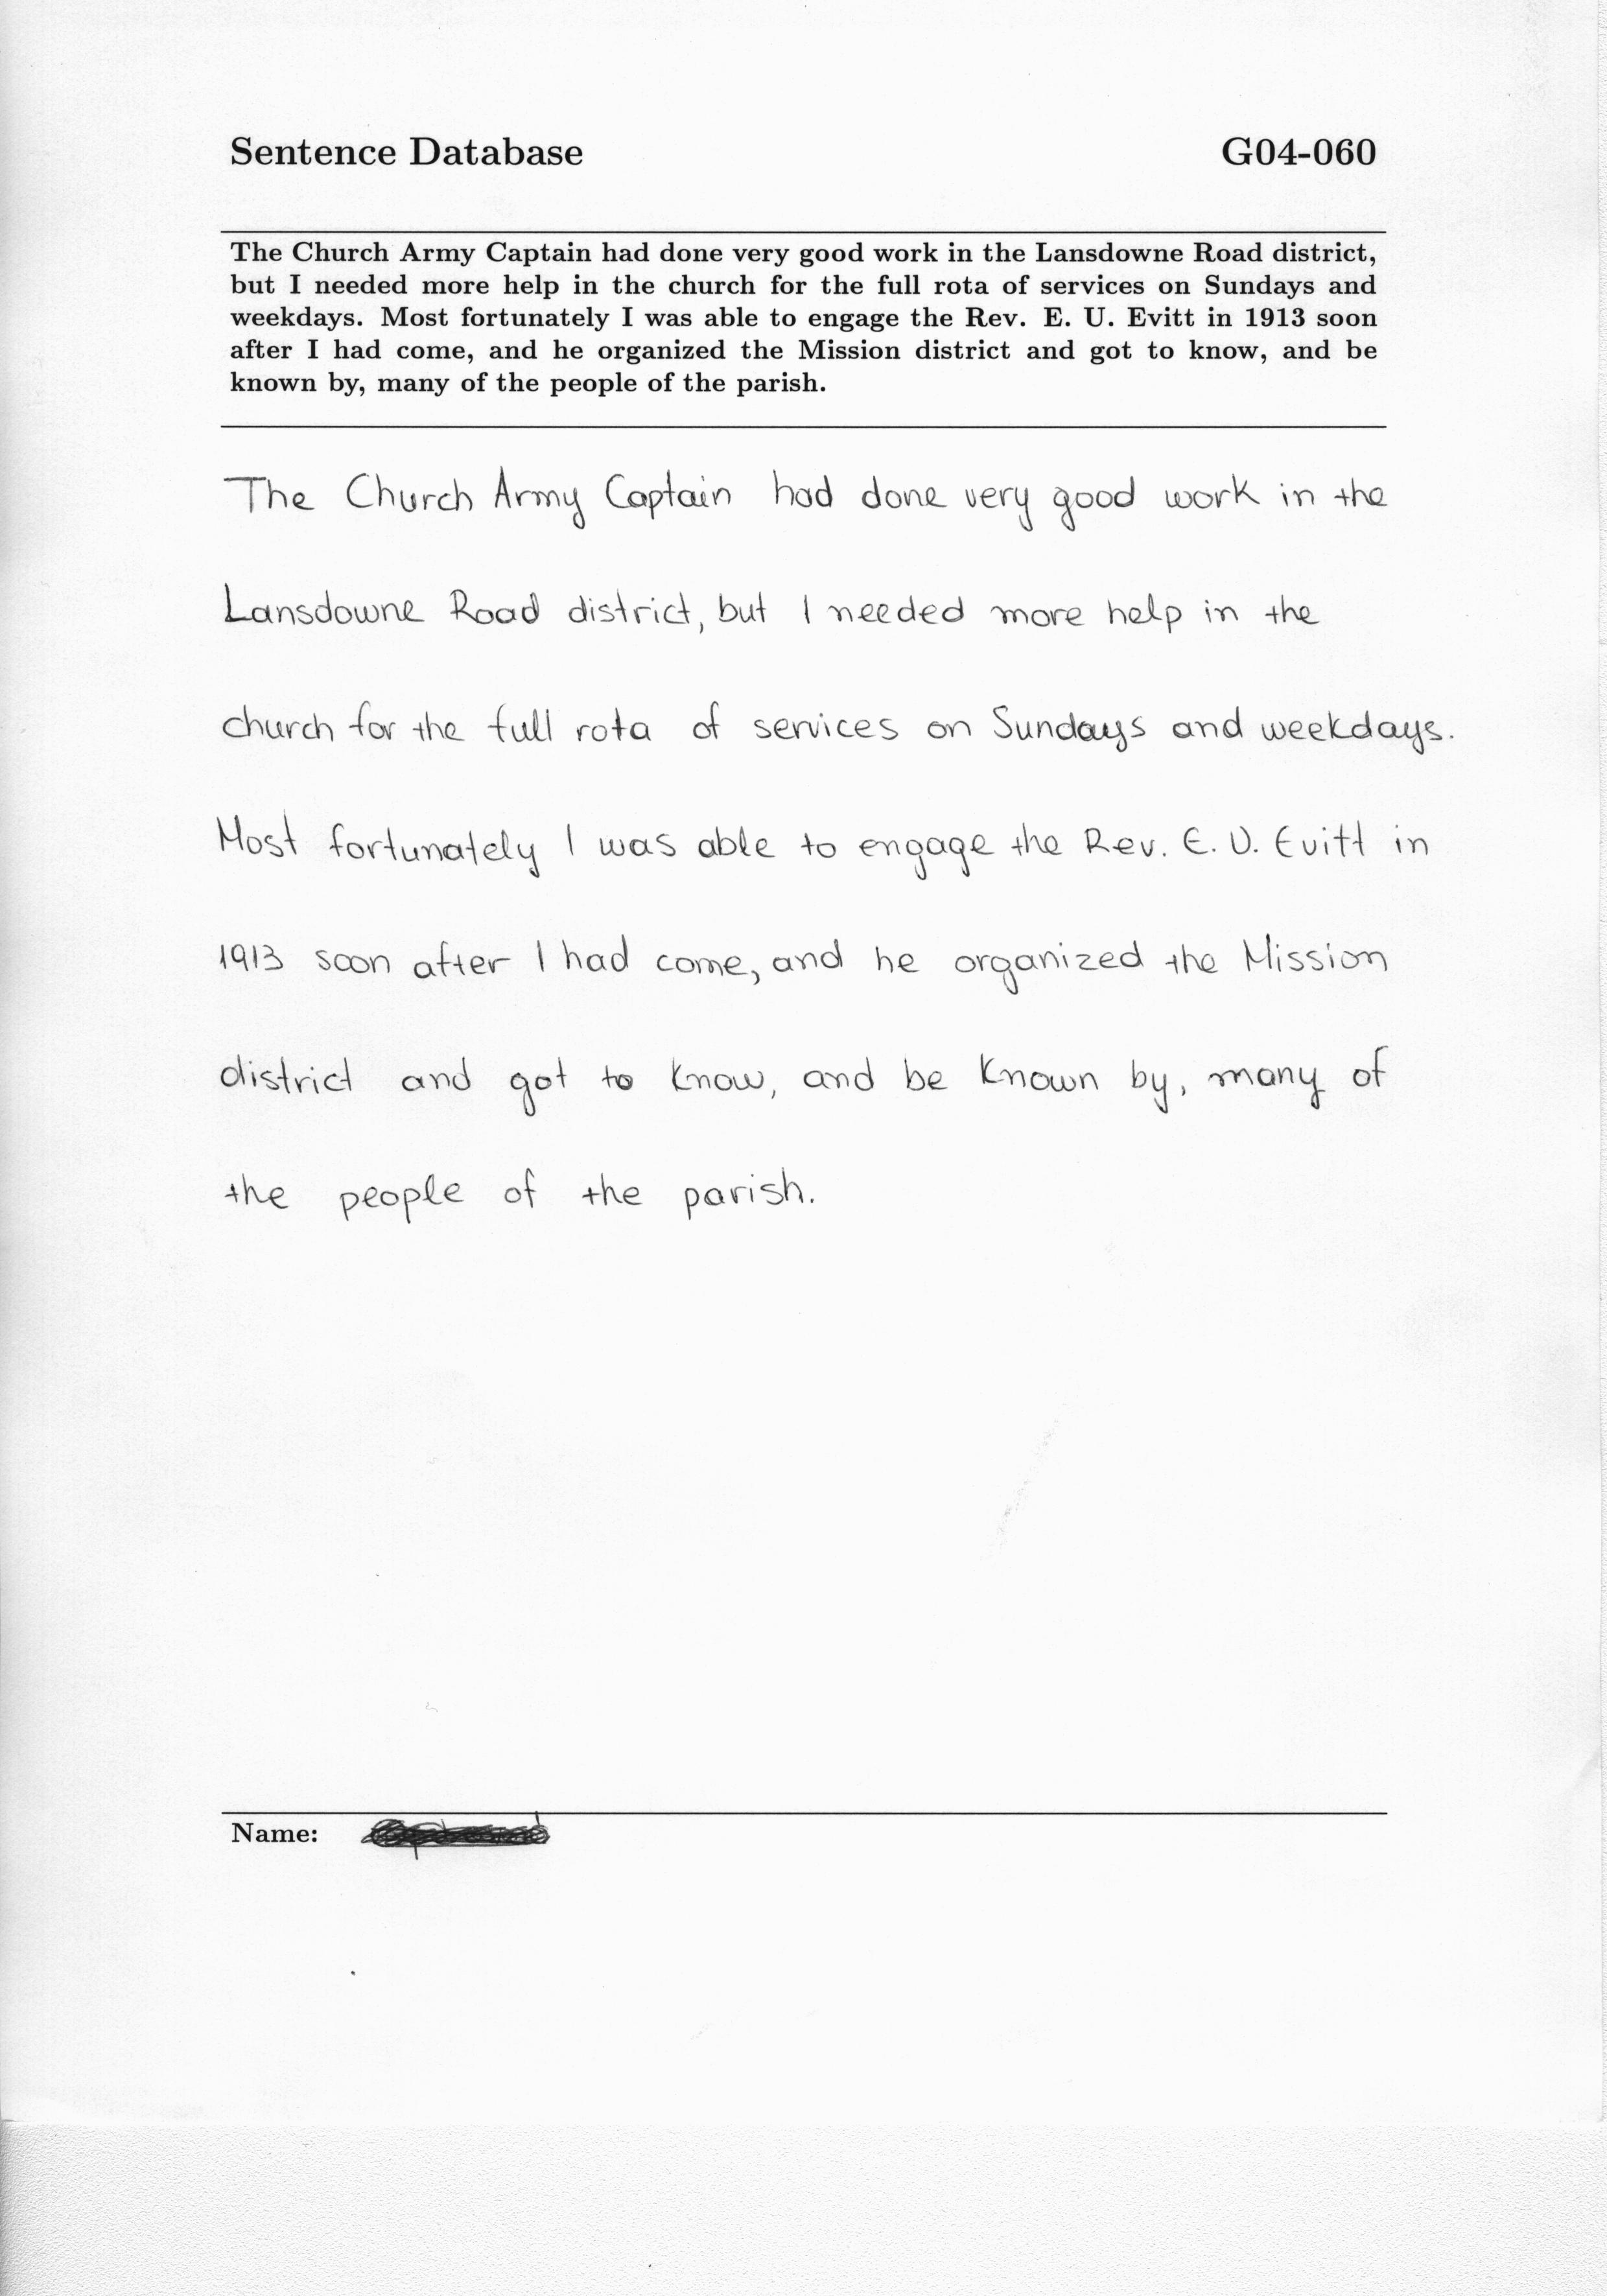 Sentence Database G04-060
The Church Army Captain had done very good work in the Lansdowne Road district,
but I needed more help in the church for the full rota of services on Sundays and
weekdays. Most fortunately I was able to engage the Rev. E. U. Evitt in 1913 soon
after I had come, and he organized the Mission district and got to know, and be
known by, many of the people of the parish.
The Church Army Captain had done very good work in the
Lansdowne Road district, but I needed more help in the
church for the full rota of services on Sundays and weekdays.
Most fortunately I was able to engage the Rev. E. U. Evitt in
1913 soon after I had come, and he organized the Mission
district and got to know, and be known by, many of
the people of the parish.
Name: